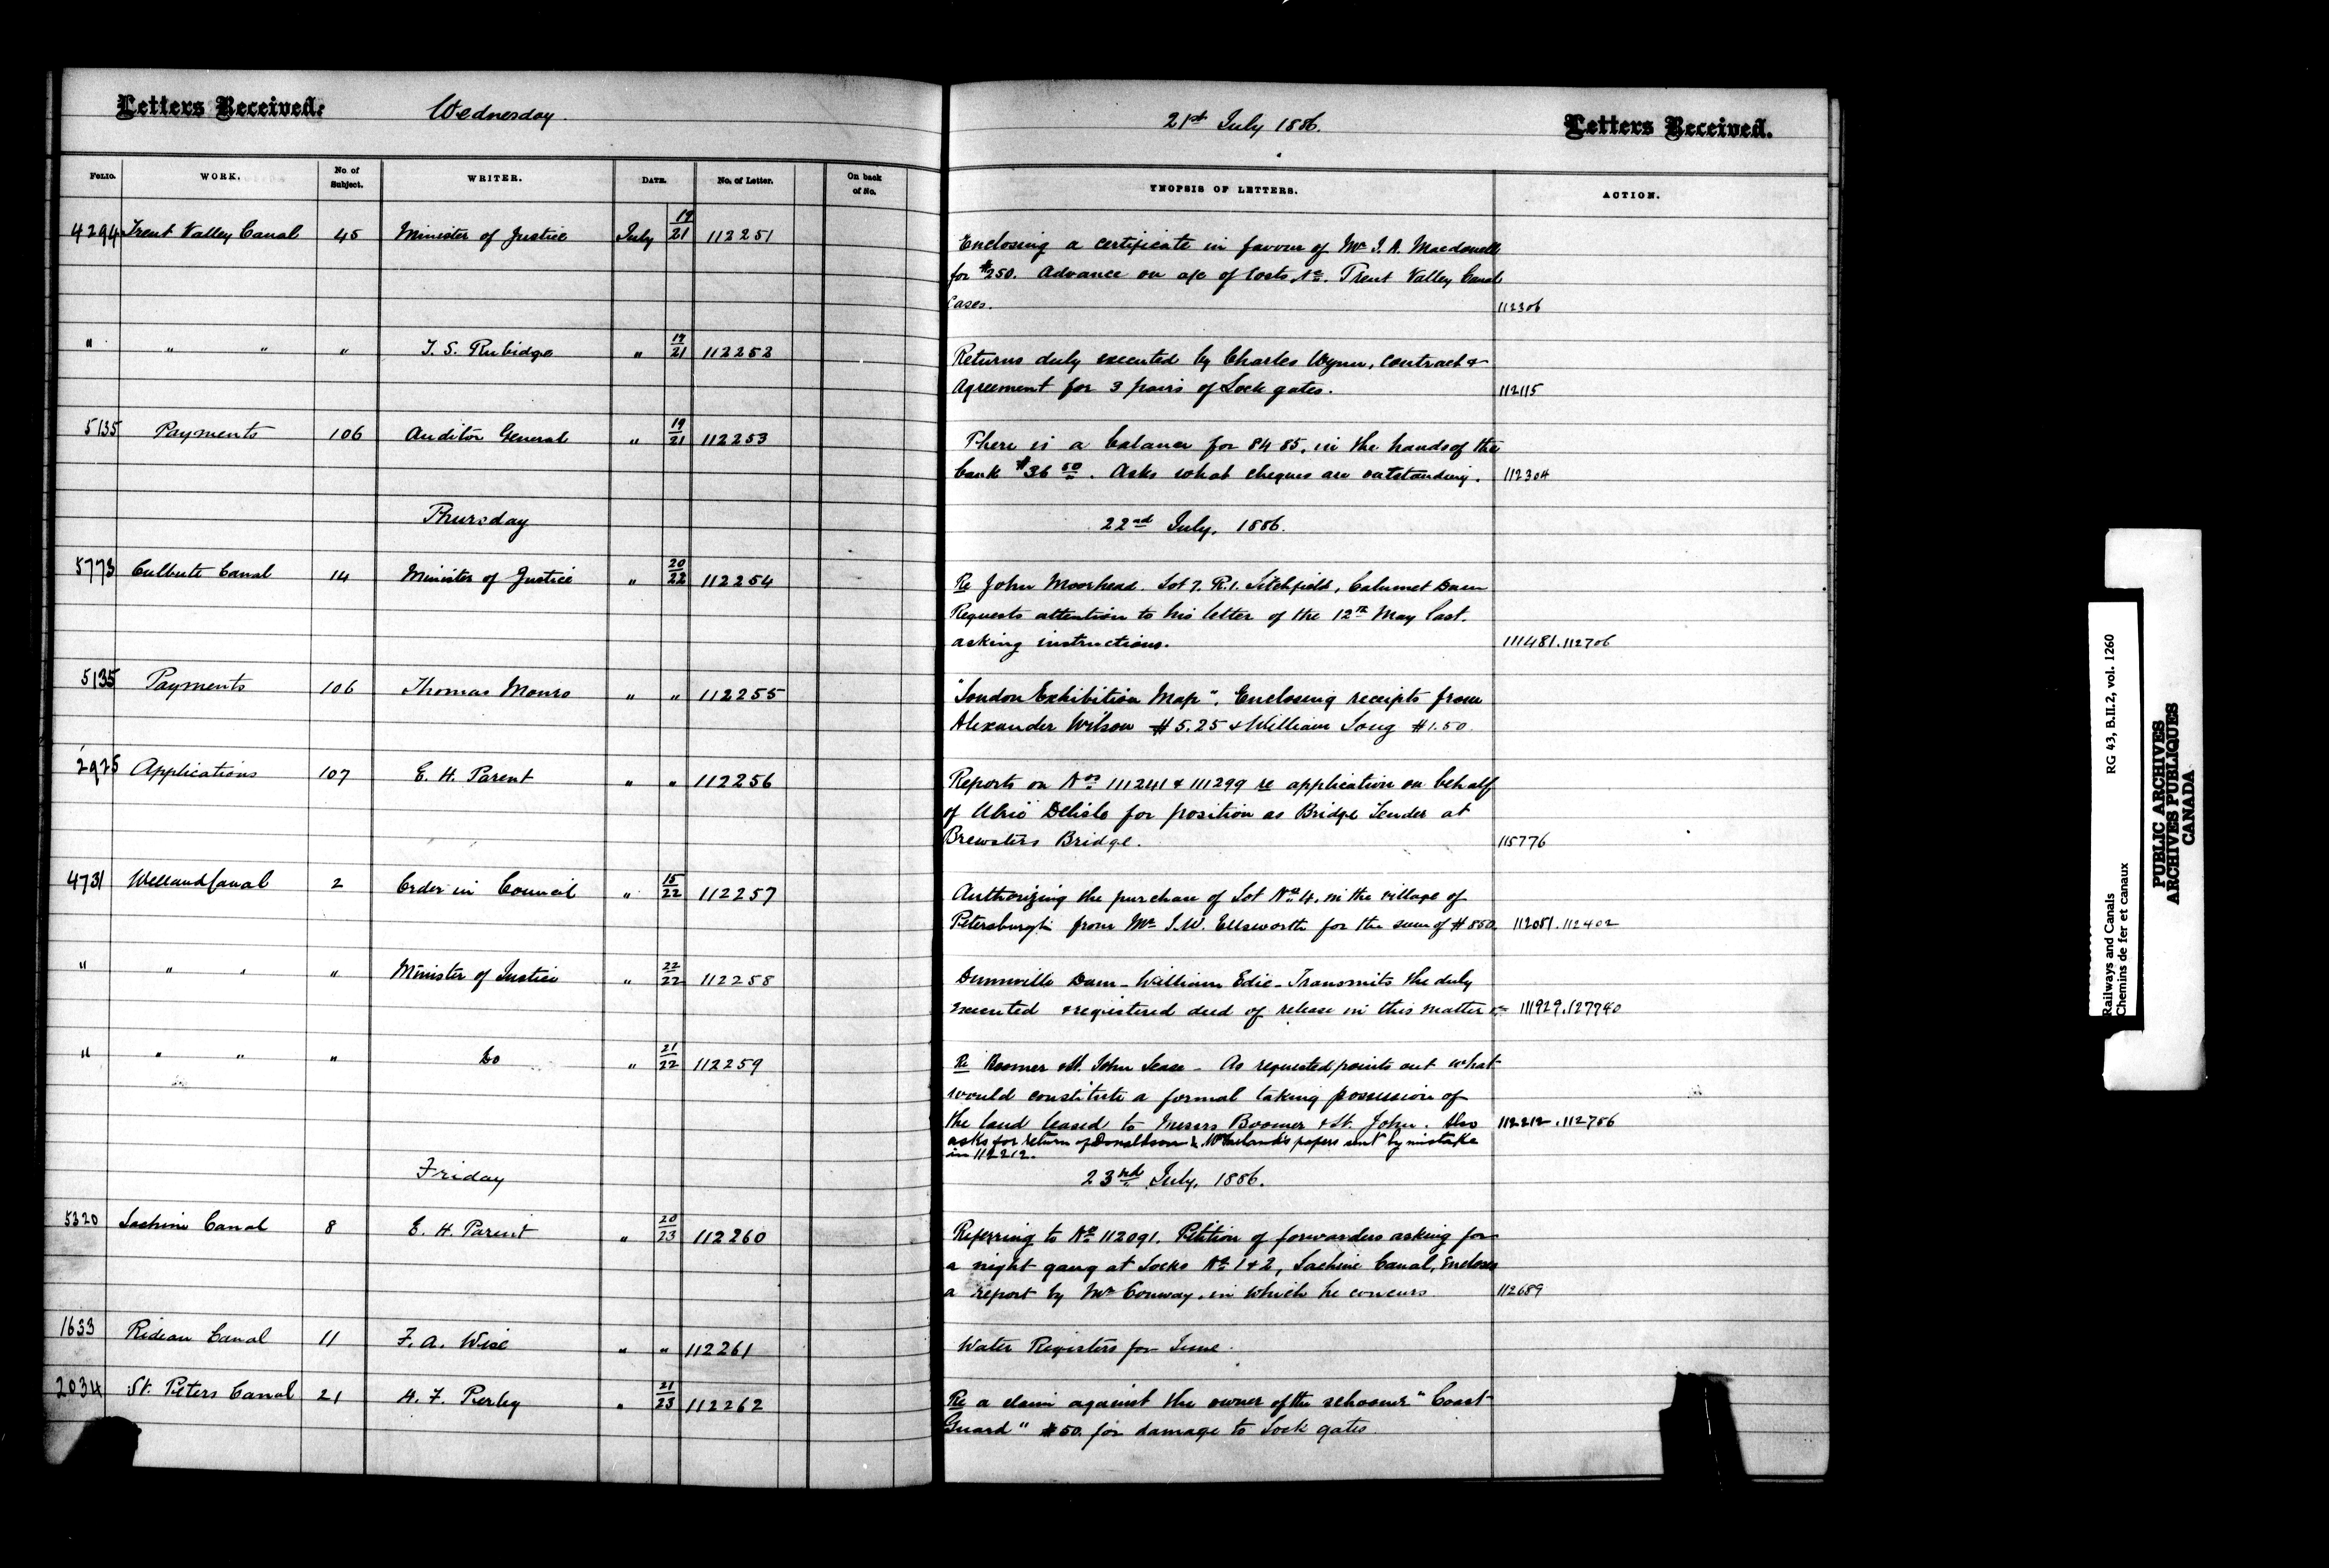 Letters Received. Wednesday 21st July 1886. Letters Received.
FOLIO. WORK. No. of Subject. WRITER. DATE. No. of Letter. On back of No. YNOPSIS OF LETTERS. ACTION.
4294 Trent Valley Canal 45 Minister of Justice July 19/21 112251 Enclosing a certificate in favour of Mr
for $250. Advance on a/c of Costs, re. Trent Valley Canal
Cases. 112306
" " " " T. S. Rubidge " 19/21 112252 Returns duly executed by Charles Wynn, contract &
Agreement for 3 pairs of Lock gates. 112115
5135 Payments 106 Auditor General " 19/21 112253 There is a balance for 84 85, in the hands of the
bank $36 50. Asks what cheques are outstanding. 112304
Thursday 22nd July, 1886.
5773 Culbute Canal 14 Minister of Justice " 20/22 112254 Re John Moorhead. Lot 7. R.1. Litchfield, Calumet Dam
Requests attention to his letter of the 12th May last.
asking instructions. 111481.112706
5135 Payments 106 Thomas Monro " " 112255 "London Exhibition Map". Enclosing receipts from
Alexander Wilson $5.25 & William Long $1.50.
2925 Applications 107 E. H. Parent " " 112256 Reports on Nos 111241 & 111299 re application on behalf
of Delisle for position as Bridge Tender at
Brewsters Bridge. 115776
4731 Welland Canal 2 Order in Council " 15/22 112257 Authorizing the purchase of Lot No 4, in the village of
Petersburgh from Mr J.W. Ellsworth for the sum of $850. 112081.112402
" " " " Minister of Justice " 22/22 112258 Dunnville Dam - William Edie - Transmits the duly
executed & registered deed of release in this matter 111929.127740
" " " " Do " 21/22 112259 Re Boomer & St. John Lease - As requested points out what
would constitute a formal taking possession of
the land leased to Messrs Boomer & St. John. Also 112212.112756
asks for return of Donaldson & papers sent by mistake
in 112212.
Friday 23rd July, 1886.
5320 Lachine Canal 8 E. H. Parent " 20/23 112260 Referring to No 112091. Petition of forwarders asking for
a night gang at Locks No 1 & 2, Lachine Canal, Encloses
a report by Mr Conway, in which he concurs. 112689
1633 Rideau Canal 11 F. A. Wise " " 112261 Water Registers for June.
2034 St. Peters Canal 21 H. F. Perley " 21/23 112262 Re a claim against the owner of the schooner "Coast
Guard" $50. for damage to Lock gates.
Railways and Canals RG 43, B.II.2, vol. 1260
Chemins de fer et canaux
PUBLIC ARCHIVES
ARCHIVES PUBLIQUES
CANADA